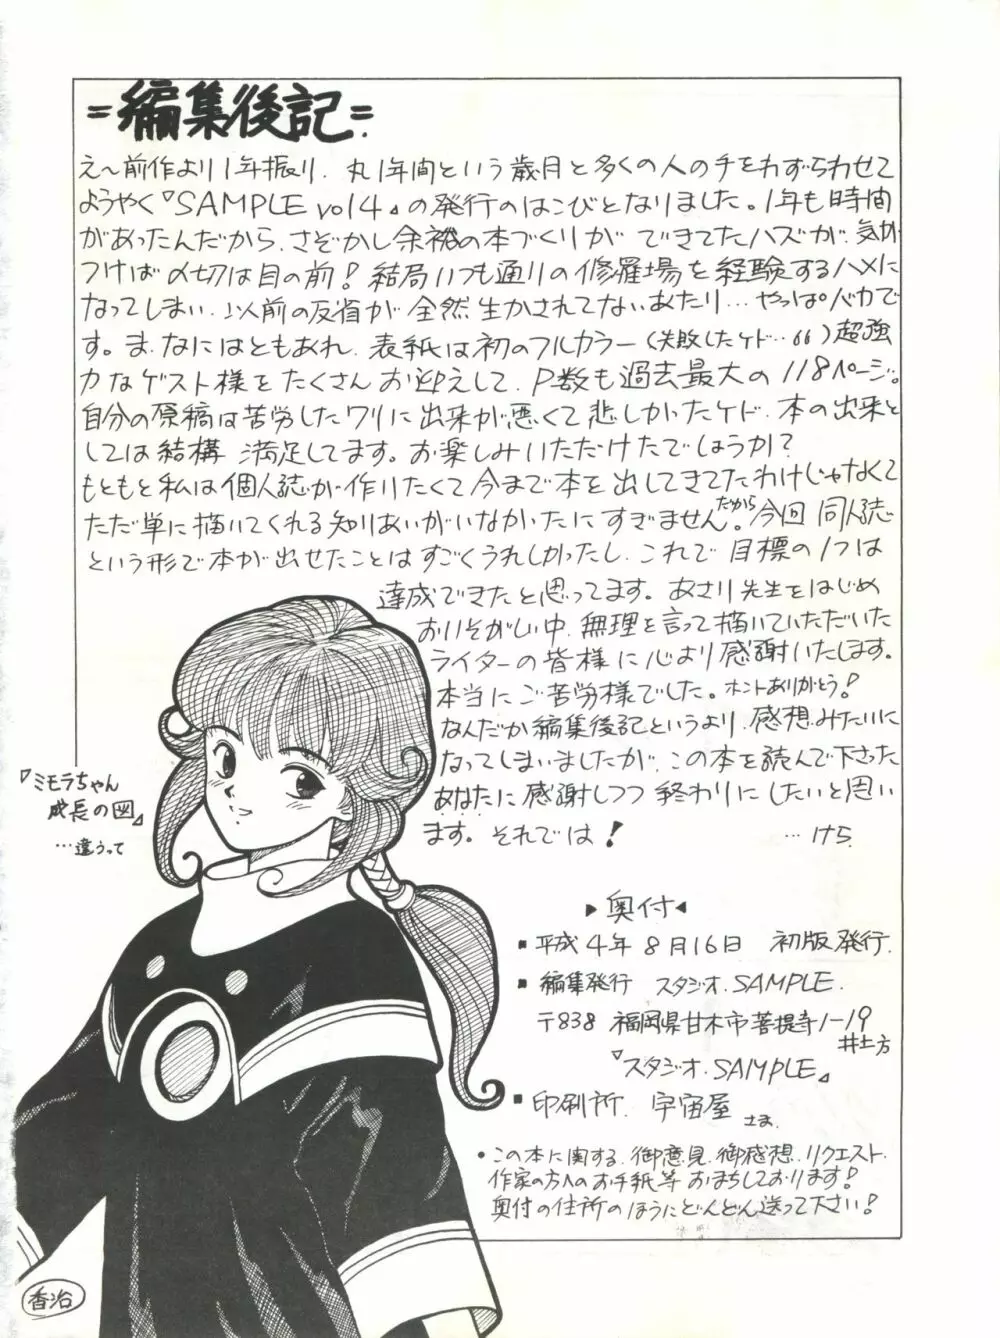 =編集後記=
え〜前作より1年振り、丸1年間という歳月と多くの人の手をわずらわせて
ようやく『SAMPLE vol4』の発行のはこびとなりました。1年も時間
があったんだから、さぞかし余裕の本づくりが できてたハズが、気が
つけば〆切は目の前!結局いつも通りの修羅場を経験するハメに
なってしまい、以前の反省が全然生かされてないあたり…やっぱバカで
す。ま、なにはともあれ、表紙は初のフルカラー(失敗したケド…66)超強
力なゲスト様をたくさんお迎えして、P数も過去最大の118ページ。
自分の原稿は苦労したワリに出来が悪くて悲しかったケド、本の出来と
しては結構 満足してます。お楽しみいただけたでしょうか?
もともと私は個人誌が作りたくて今まで本を出してきてたわけじゃなくて
ただ単に描いてくれる知りあいがいなかったにすぎません。だから今回 同人誌
という形で本が出せたことはすごくうれしかったし、これで目標の1つは
達成できたと思ってます。あさり先生をはじめ
おいそがしい中、無理を言って描いていただいた
ライターの皆様に心より感謝いたします。
本当にご苦労様でした。ホントありがとう!
なんだか編集後記というより、感想みたいに
なってしまいましたが、この本を読んで下さった
あなたに感謝しつつ 終わりにしたいと思い
ます。それでは!
…けち
『ミモラちゃん
成長の図』
…違うって
▶奥付◀
■平成4年8月16日 初版発行.
■編集発行 スタジオ.SAMPLE.
〒838 福岡県甘木市菩提寺1-19
井上方
『スタジオ.SAMPLE』
■印刷所. 宇宙屋 さま.
•この本に関する.御意見.御感想.リクエスト.
作家の方へのお手紙等 おまちしております!
奥付の住所のほうにどんどん送って下さい!
香治